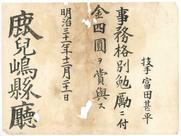 技手 富田甚平
事務格別勉励ニ付
金四圓ヲ賞與ス
明治三十一年十二月二十一日
鹿兒嶋縣廳